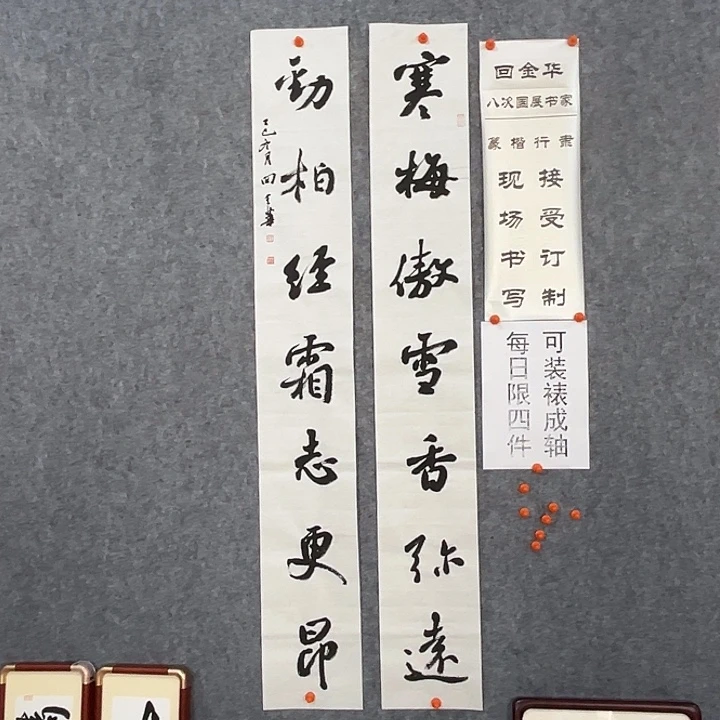 寒梅傲雪香弥遠
勁柏经霜志更昂
回金华
八次国展书家
篆楷行隶
接受订制
现场书写
可装裱成轴
每日限四件